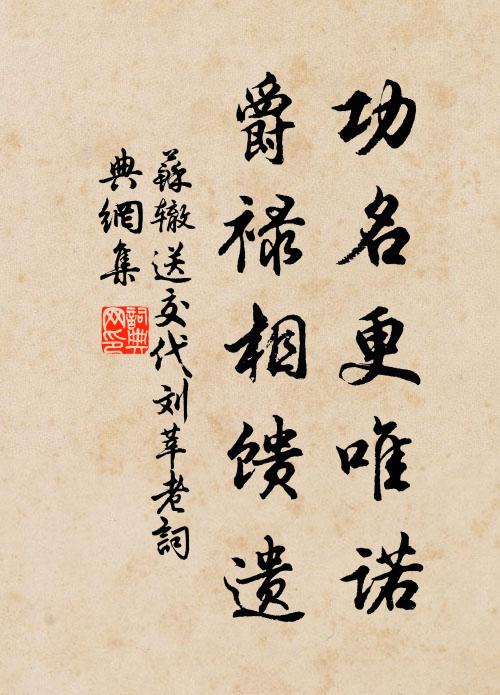 功名更唯诺
爵禄相馈遗
蘇辙送交代刘莘老詞
典網集
詞典
网印